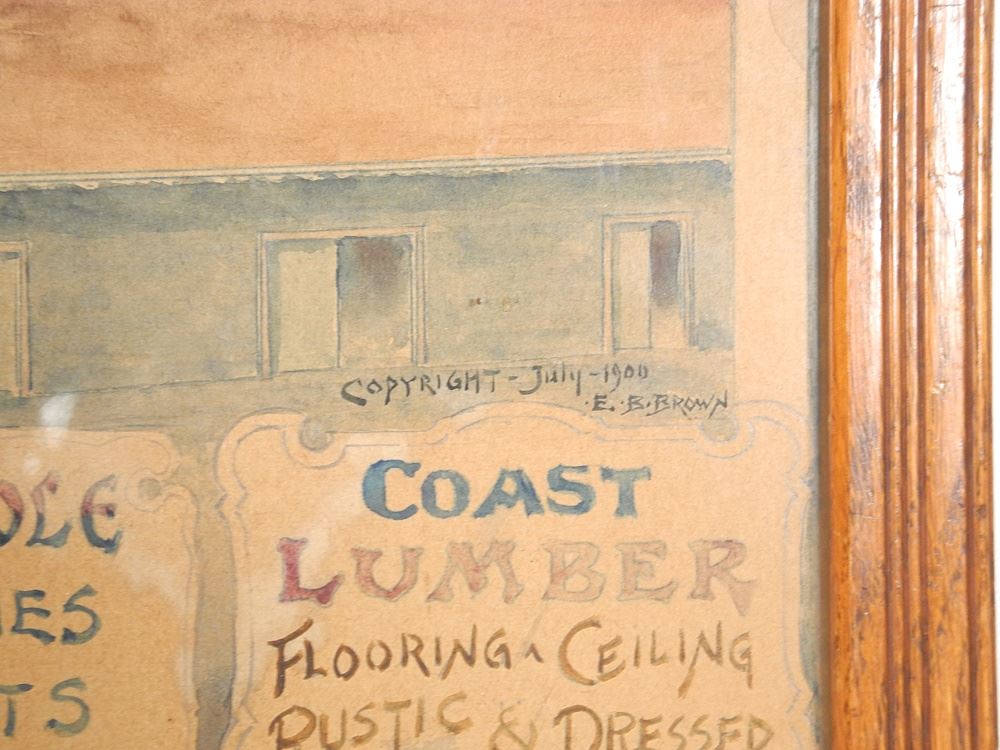 COPYRIGHT - July - 1900
E. B. BROWN
COAST
LUMBER
FLOORING CEILING
RUSTIC & DRESSED
OLE
ES
TS